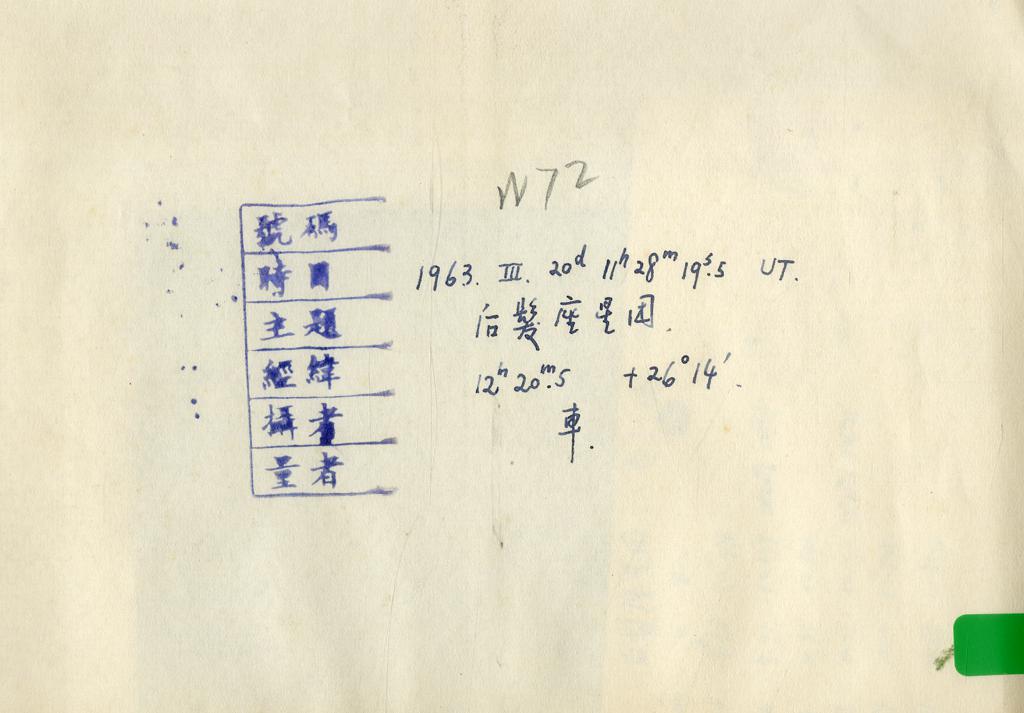 N72
號碼
時日 1963. III. 20d 11h 28m 19s.5 UT.
主題 后髮座星团.
經緯 12h 20m.5 +26° 14′.
攝者 車.
量者